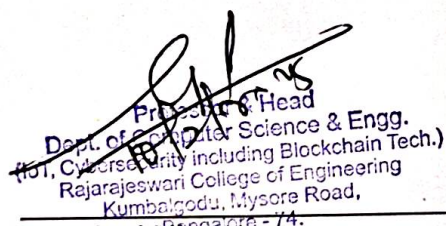 Professor & Head
Dept. of Computer Science & Engg.
(IoT, Cybersecurity including Blockchain Tech.)
Rajarajeswari College of Engineering
Kumbalgodu, Mysore Road,
Bangalore - 74.